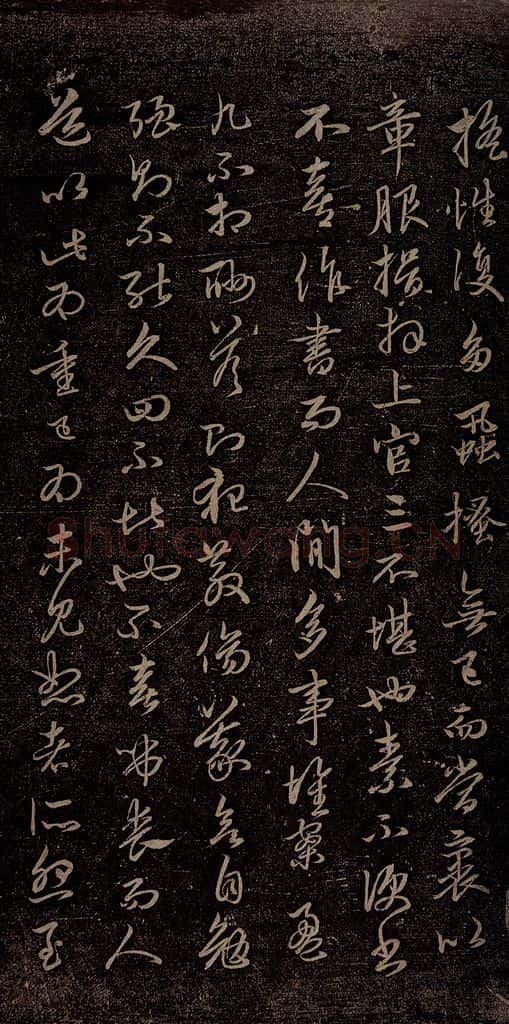 搖性復多蝨搔無已而當裹以
章服揖拜上官三不堪也素不便書
不喜作書而人間多事堆案盈
几不相酬答則犯教傷義欲自勉
強則不能久四不堪也不喜弔喪而人
道以此為重已為未見恕者所怨至
Shufawang.CN